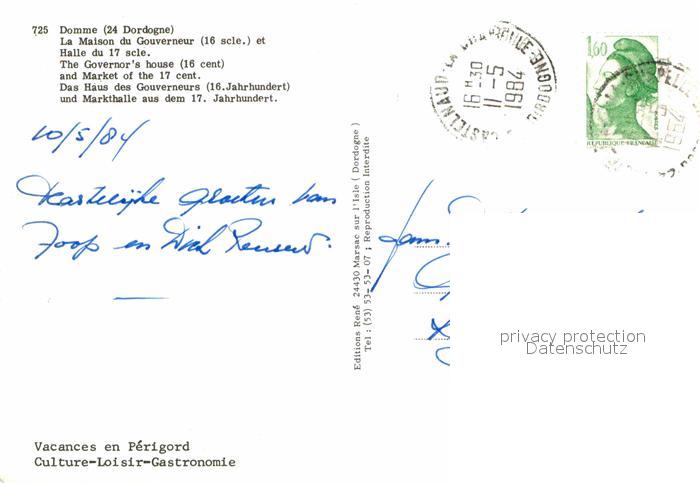 725 Domme (24 Dordogne)
La Maison du Gouverneur (16 scle.) et
Halle du 17 scle.
The Governor's house (16 cent)
and Market of the 17 cent.
Das Haus des Gouverneurs (16.Jahrhundert)
und Markthalle aus dem 17. Jahrhundert.
10/5/84
Hartelijke groeten van
Joop en Dick
Editions René 24430 Marsac sur l'Isle ( Dordogne )
Tel : (53) 53-53-07 ; Reproduction Interdite
CASTELNAUD-LA CHAPELLE DORDOGNE
16 H 30
11-5
1984
1,60
REPUBLIQUE FRANCAISE
1984
Fam.
privacy protection
Datenschutz
Vacances en Périgord
Culture-Loisir-Gastronomie